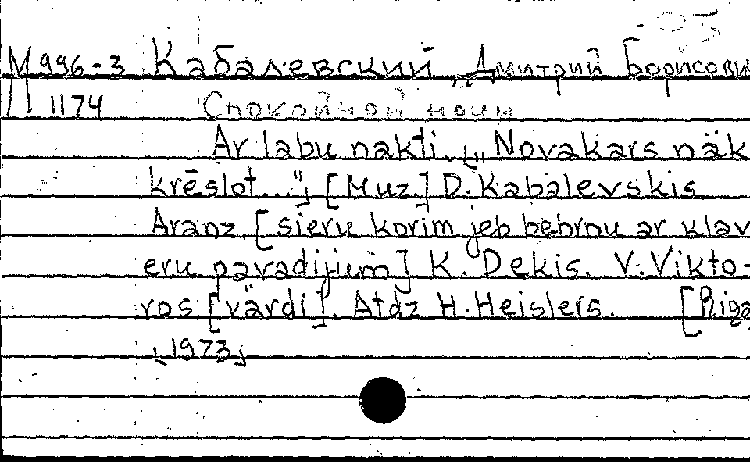 М 996-3 Кабалевский, Дмитрий Борисови
1174 Спокойной ночи
Ar labu nakti. „Novakars nāk
krēslot..." [Muz.] D. Kabalevskis
Aranž. [sieru korim jeb bebrnu ar klav
eru pavadijum] K. Dekis. V. Vikto-
ros [vārdi]. Atdz. H. Heislers. [Riga
1973]